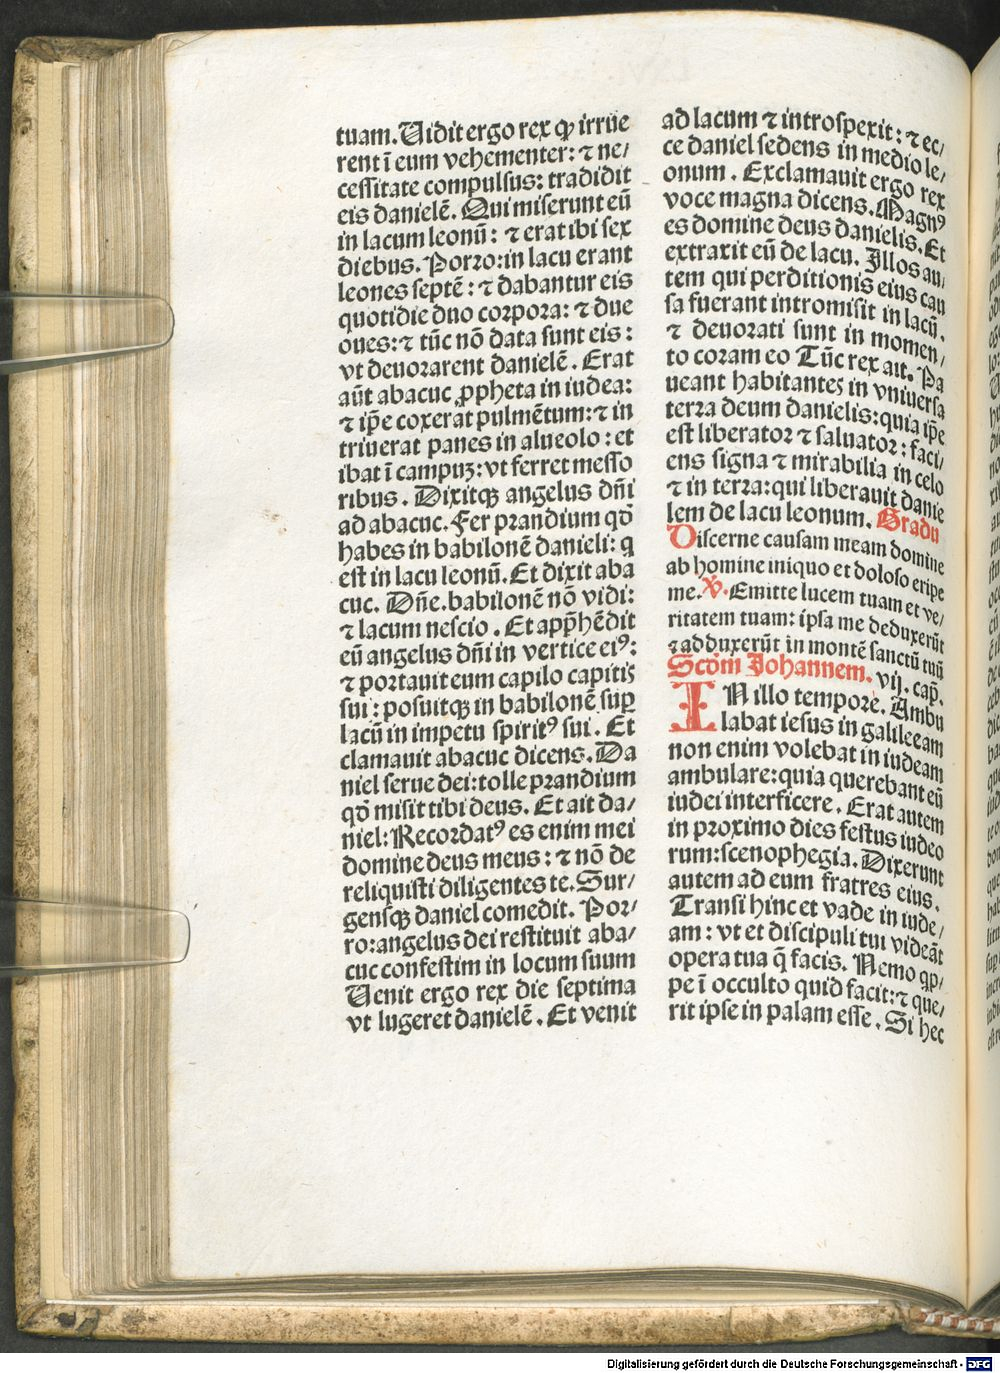 tuam. Uidit ergo rex ꝙ irrue
rent ī eum vehementer: ⁊ ne/
cessitate compulsus: tradidit
eis danielē. Qui miserunt eū
in lacum leonū: ⁊ erat ibi sex
diebus. Porro: in lacu erant
leones septē: ⁊ dabantur eis
quotidie duo corpora: ⁊ due
oues: ⁊ tūc nō data sunt eis:
vt deuorarent danielē. Erat
aūt abacuc ꝓpheta in iudea:
⁊ ip̄e coxerat pulmētum: ⁊ in
triuerat panes in alueolo: et
ibat ī campuꝫ: vt ferret messo
ribus. Dixitqꝫ angelus dn̄i
ad abacuc. Fer prandium qō
habes in babilonē danieli: q
est in lacu leonū. Et dixit aba
cuc. Dn̄e. babilonē nō vidi:
⁊ lacum nescio. Et app̄hēdit
eū angelus dn̄i in vertice eiꝰ:
⁊ portauit eum capilo capitis
sui: posuitqꝫ in babilonē suꝑ
lacū in impetu spiritꝰ sui. Et
clamauit abacuc dicens. Da
niel serue dei: tolle prandium
qō misit tibi deus. Et ait da/
niel: Recordatꝰ es enim mei
domine deus meus: ⁊ nō de
reliquisti diligentes te. Sur/
gensqꝫ daniel comedit. Por/
ro: angelus dei restituit aba/
cuc confestim in locum suum
Uenit ergo rex die septima
vt lugeret danielē. Et venit
ad lacum ⁊ introspexit: ⁊ ec/
ce daniel sedens in medio le/
onum. Exclamauit ergo rex
voce magna dicens. Magnꝰ
es domine deus danielis. Et
extraxit eū de lacu. Illos au/
tem qui perditionis eius cau
sa fuerant intromisit in lacū.
⁊ deuorati sunt in momen/
to coram eo Tūc rex ait. Pa
ueant habitantes in vniuersa
terra deum danielis: quia ip̄e
est liberator ⁊ saluator: faci/
ens signa ⁊ mirabilia in celo
⁊ in terra: qui liberauit danie
lem de lacu leonum. Gradu
Discerne causam meam domine
ab homine iniquo et doloso eripe
me. ℣. Emitte lucem tuam et ve/
ritatem tuam: ipsa me deduxerūt
⁊ adduxerūt in montē sanctū tuū
Scōm Johannem. vij. cap̄.
IN illo tempore. Ambu
labat iesus in galileeam
non enim volebat in iudeam
ambulare: quia querebant eū
iudei interficere. Erat autem
in proximo dies festus iudeo
rum: scenophegia. Dixerunt
autem ad eum fratres eius.
Transi hinc et vade in iude/
am: vt et discipuli tui videāt
opera tua q̄ facis. Nemo qp/
pe ī occulto quid facit: ⁊ que/
rit ipse in palam esse. Si hec
Digitalisierung gefördert durch die Deutsche Forschungsgemeinschaft - DFG